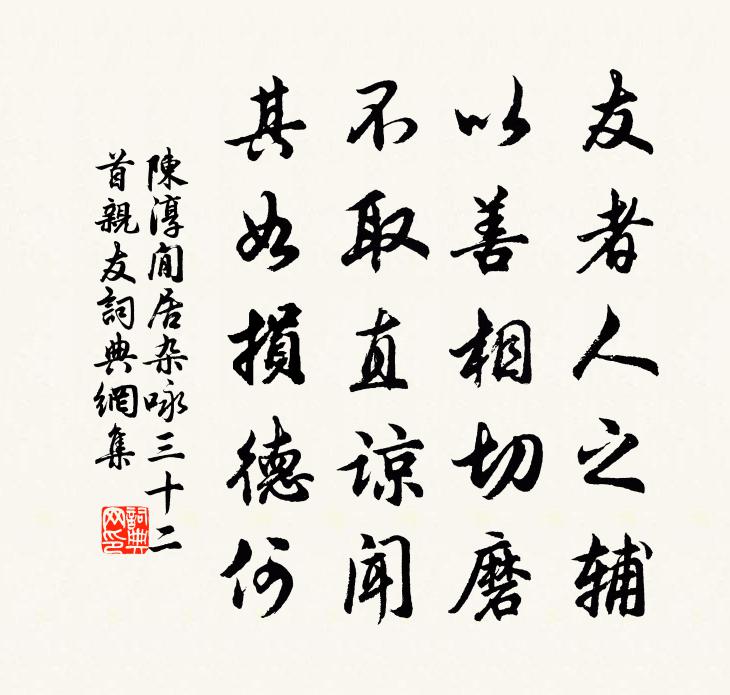 友者人之辅
以善相切磨
不取直谅闻
其如损德何
陳淳閒居杂咏三十二
首親友詞典網集
詞典
网印